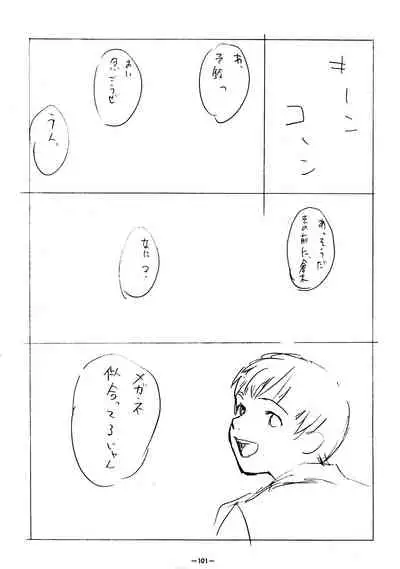 キーン
コーン
お、
予鈴っ
おい
急ごうぜ
うん、
あっそうだ
その前に、倉本
なに?
メガネ
似合ってるじゃん
-101-